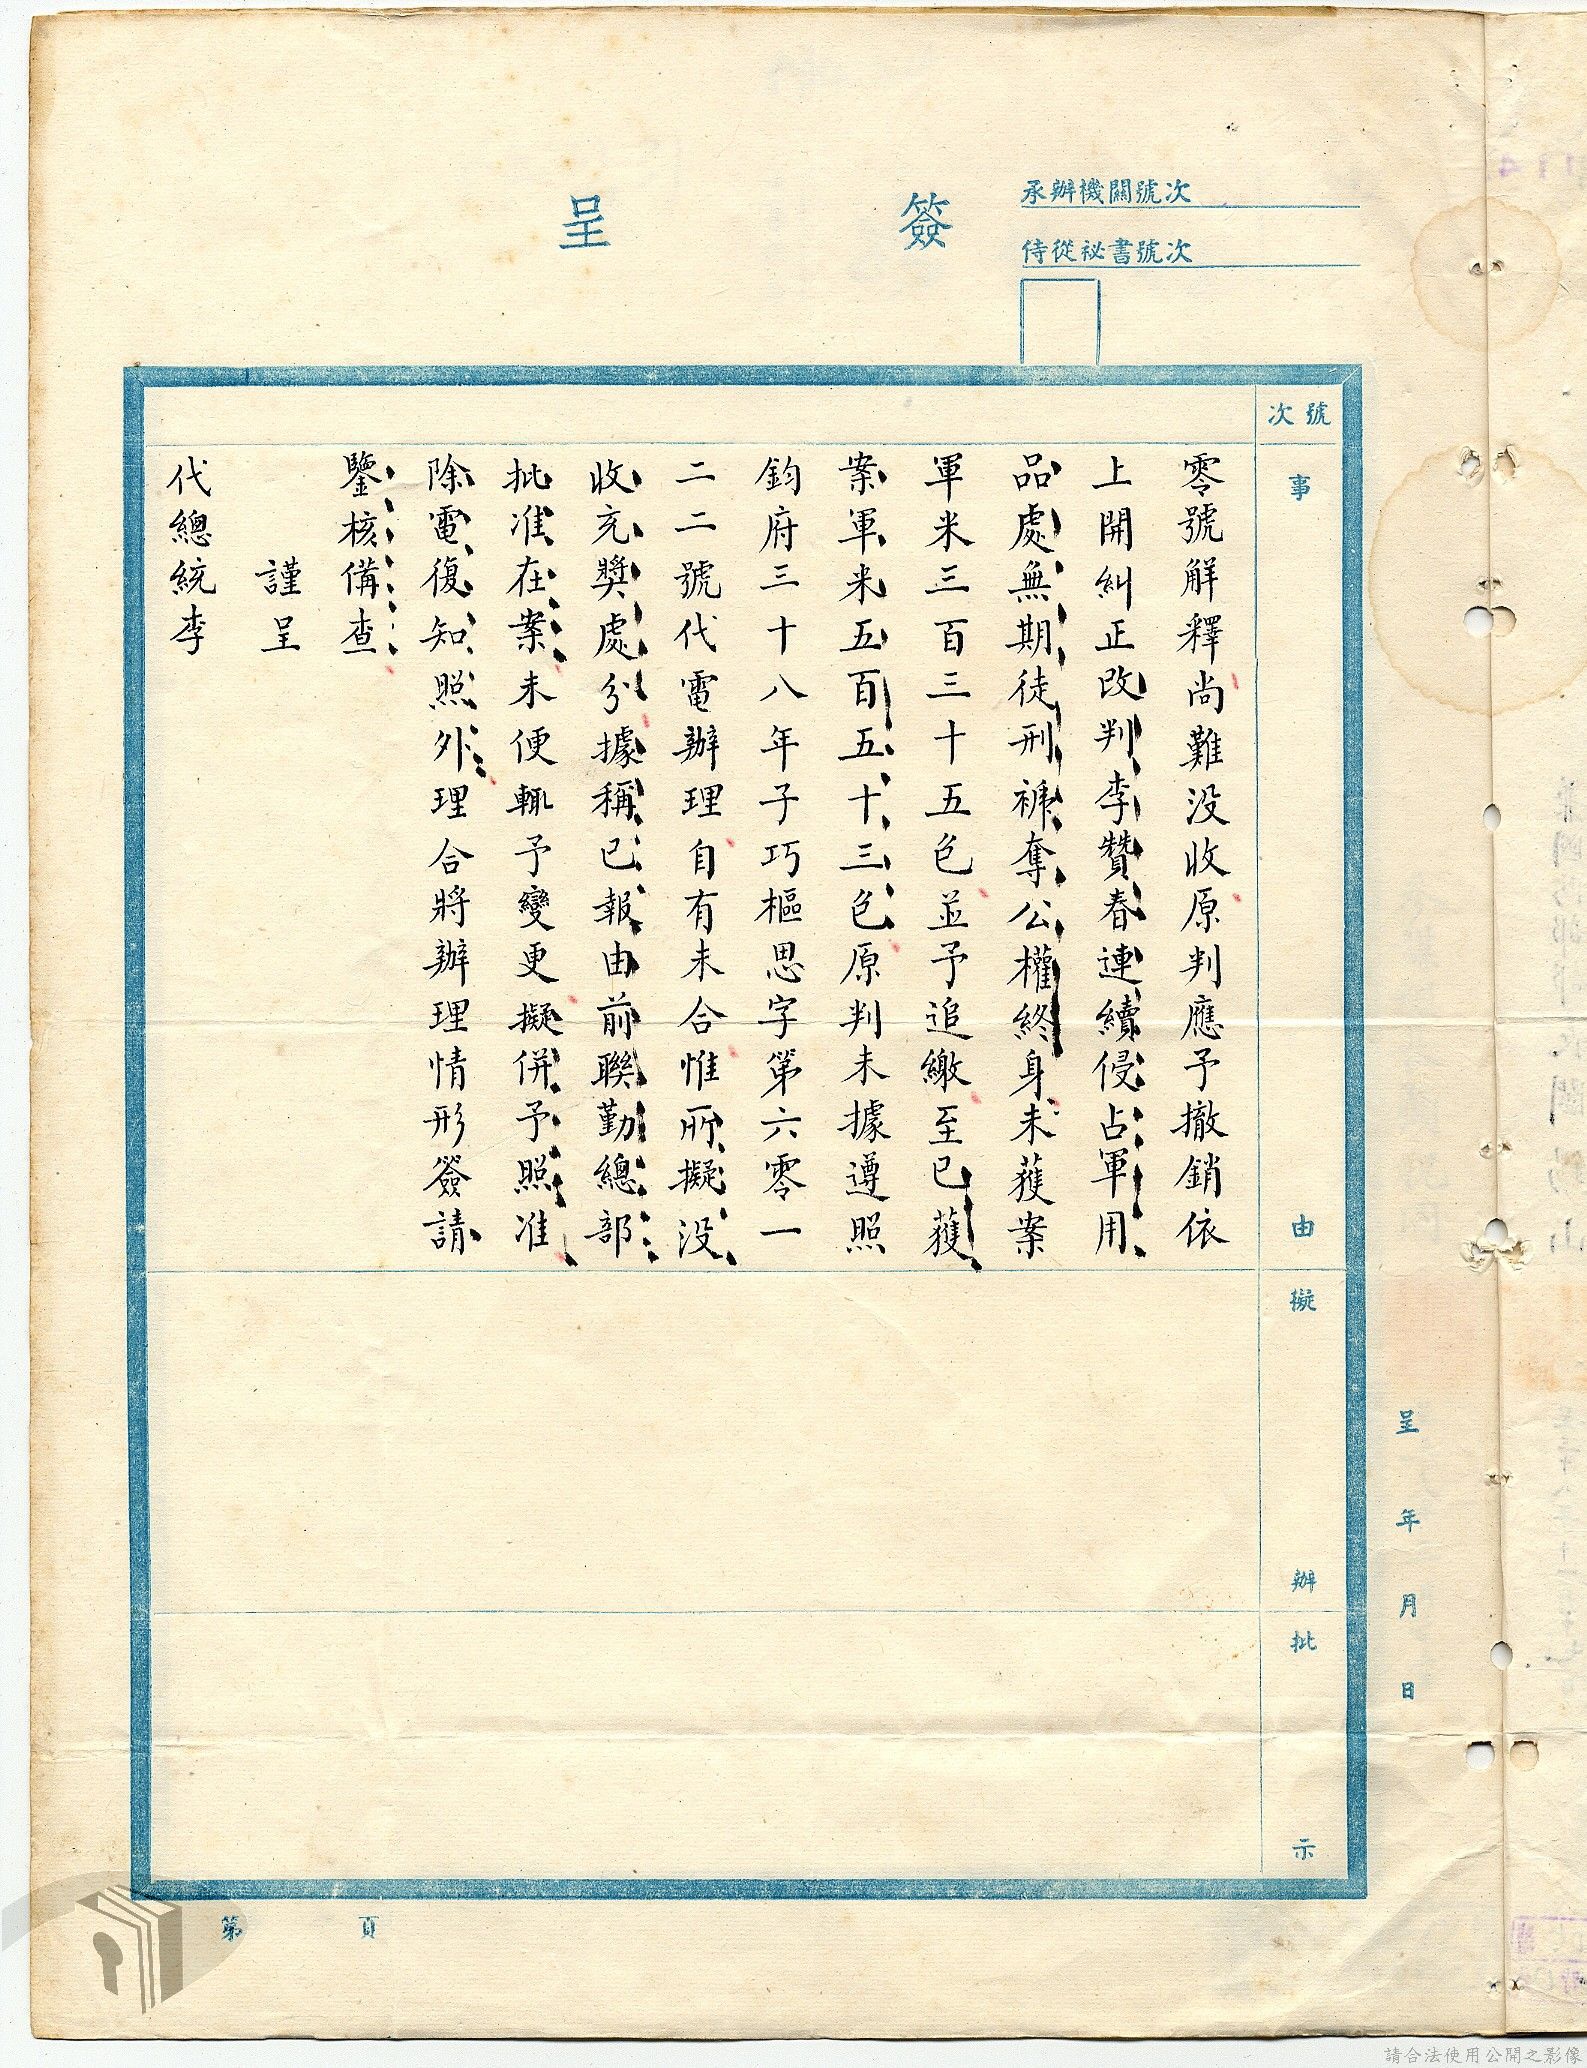 簽呈
承辦機關號次
侍從祕書號次
號次
事由
擬辦
批示
零號解釋尚難沒收原判應予撤銷依
上開糾正改判李贊春連續侵占軍用
品處無期徒刑褫奪公權終身未獲案
軍米三百三十五包並予追繳至已獲
案軍米五百五十三包原判未據遵照
鈞府三十八年子巧樞思字第六零一
二二號代電辦理自有未合惟所擬沒
收充獎處分據稱已報由前聯勤總部
批准在案未便輒予變更擬併予照准
除電復知照外理合將辦理情形簽請
鑒核備查
謹呈
代總統李
呈 年 月 日
第 頁
請合法使用公開之影像